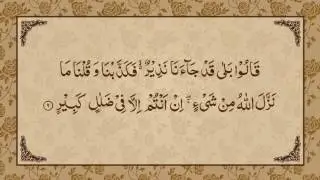 قَالُوْا بَلٰى قَدْ جَآءَنَا نَذِيْرٌ ۙ۬ فَكَذَّبْنَا وَ قُلْنَا مَا
نَزَّلَ اللّٰهُ مِنْ شَيْءٍ ۖۚ اِنْ اَنْتُمْ اِلَّا فِيْ ضَلٰلٍ كَبِيْرٍ ﴿۹﴾